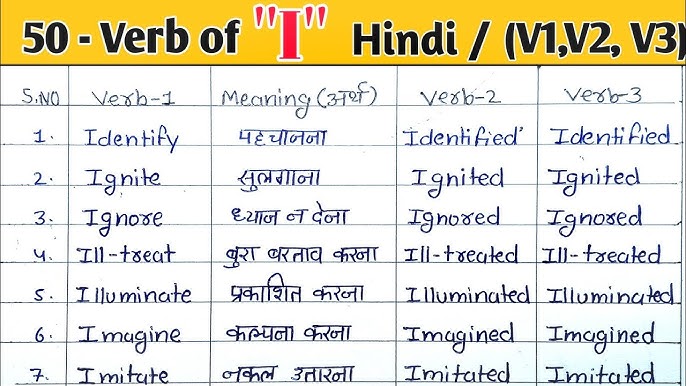 50 - Verb of "I" Hindi / (V1,V2, V3)
S.NO Verb-1 Meaning (अर्थ) Verb-2 Verb-3
1. Identify पहचानना Identified' Identified
2. Ignite सुलगाना Ignited Ignited
3. Ignore ध्यान न देना Ignored Ignored
4. Ill-treat बुरा बरताव करना Ill-treated Ill-treated
5. Illuminate प्रकाशित करना Illuminated Illuminated
6. Imagine कल्पना करना Imagined Imagined
7. Imitate नकल उतारना Imitated Imitated